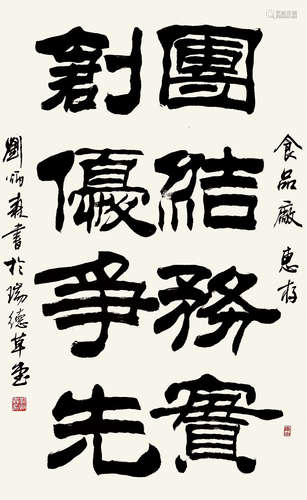 食品廠惠存
團結務實
創優爭先
劉炳森書於瑞德草堂